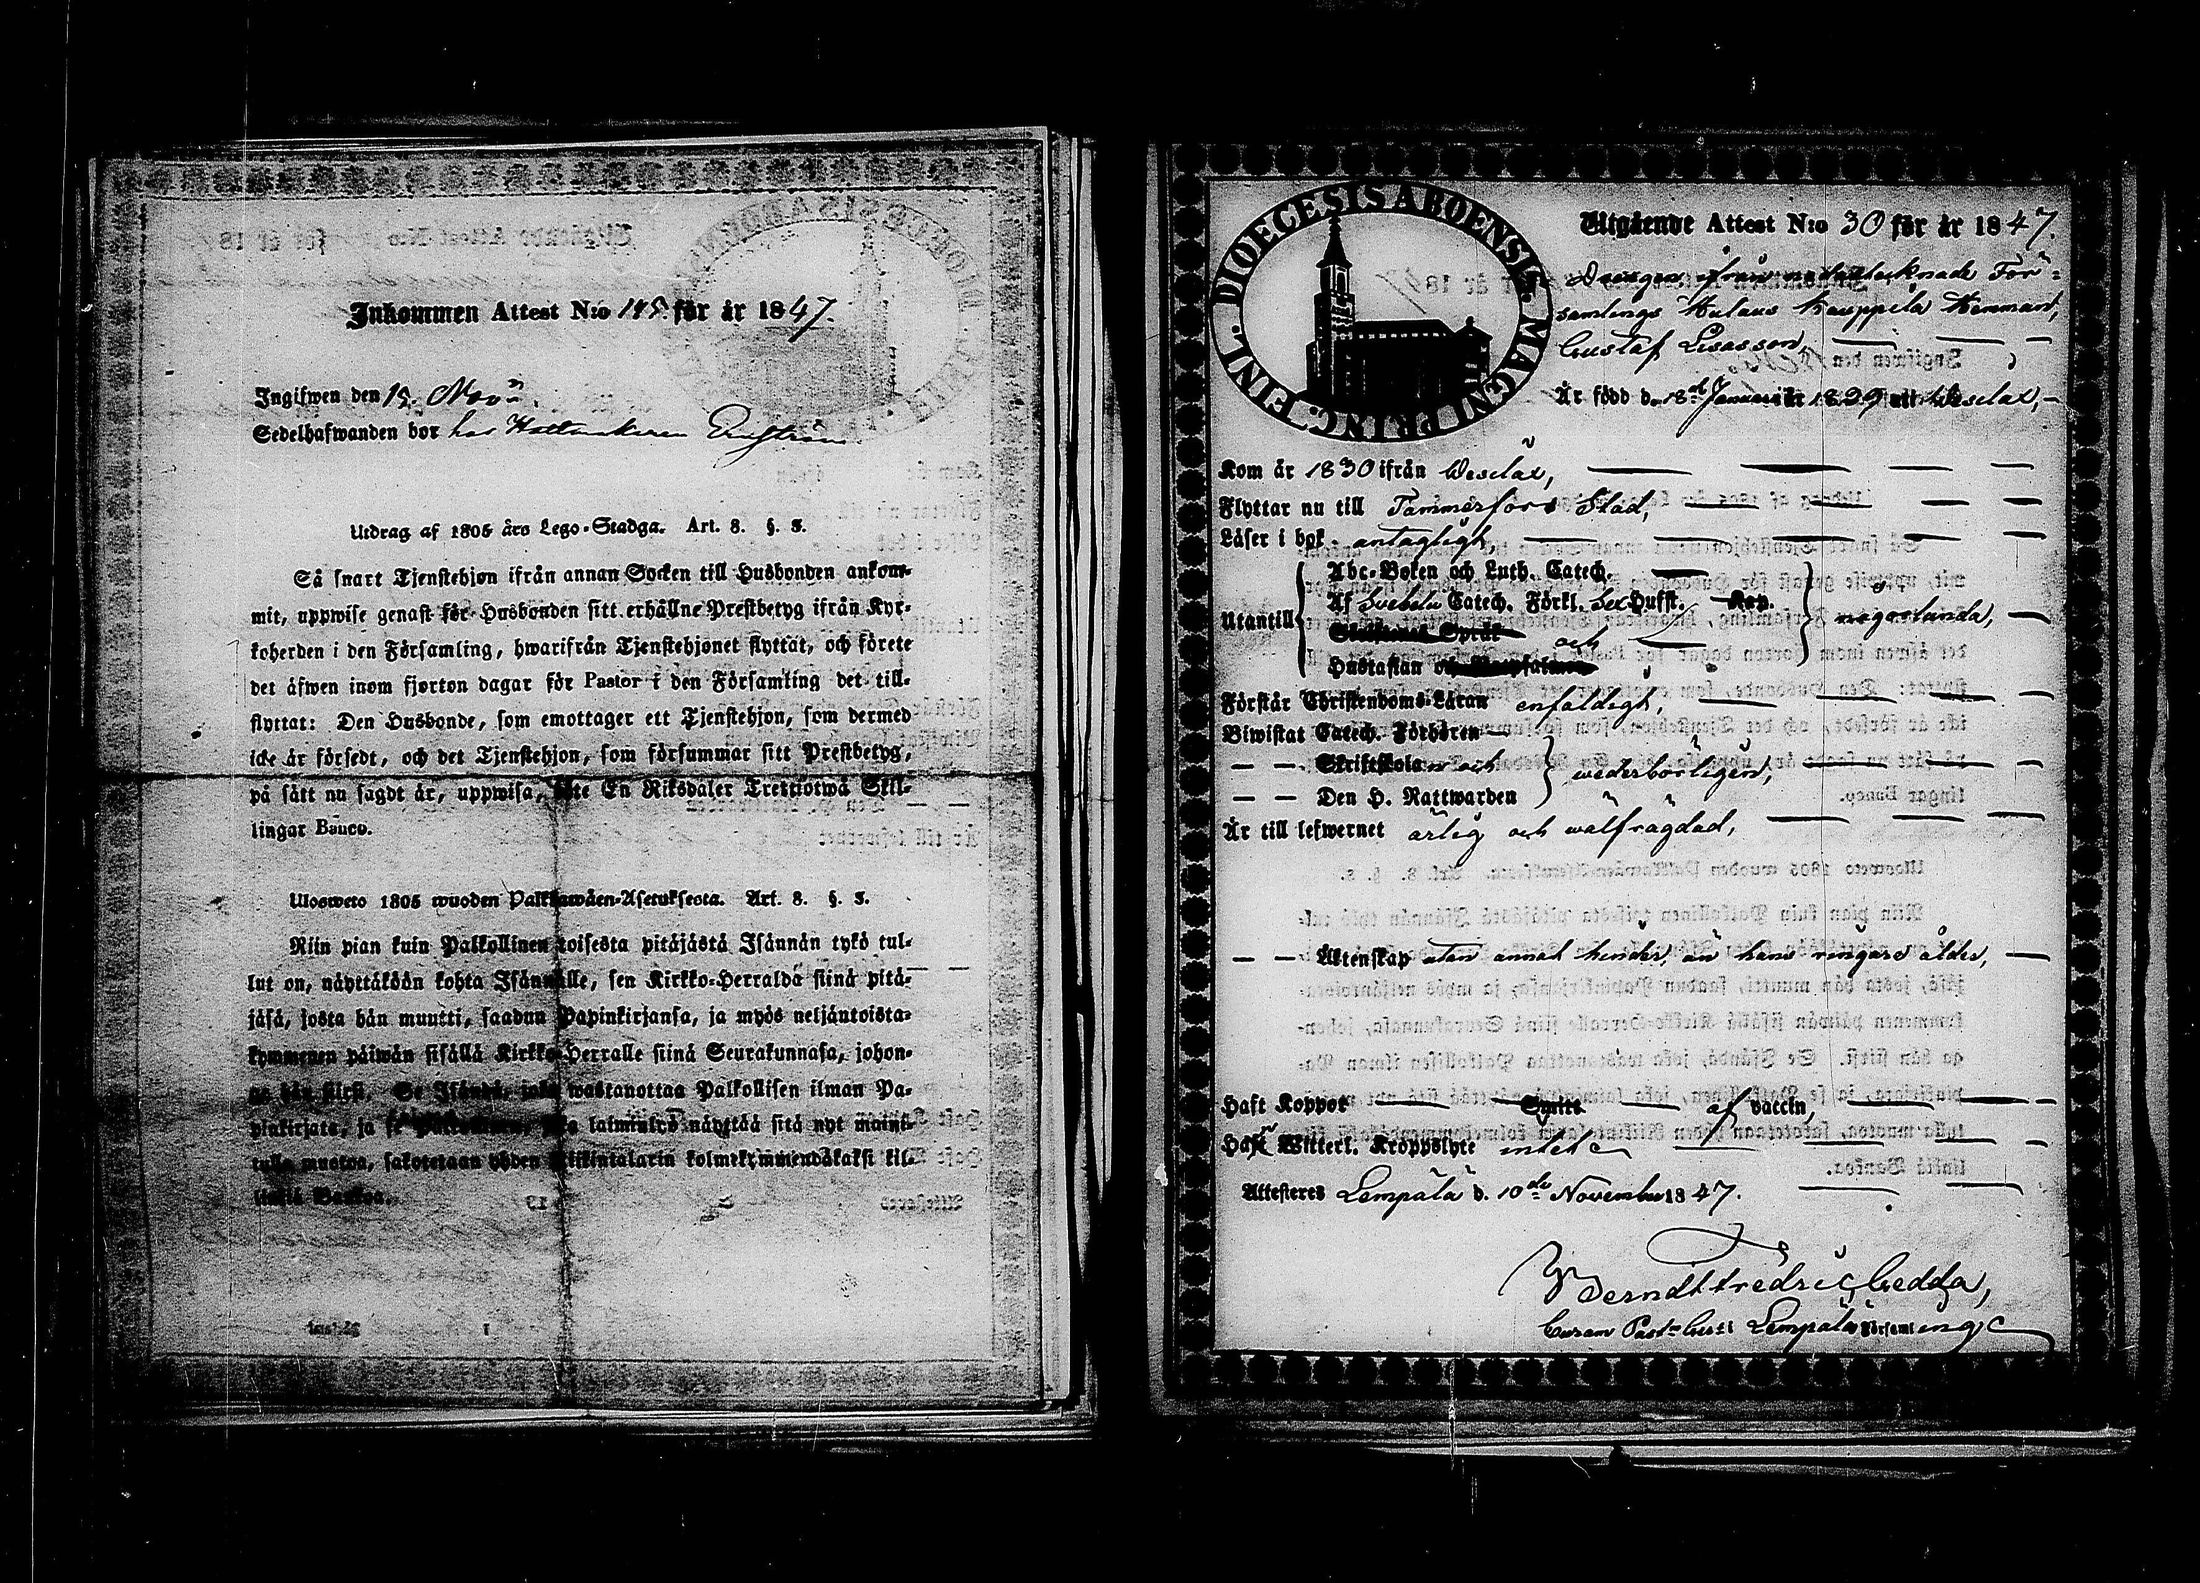 Inkommen Attest N:o 118 för år 1847.
Ingifwen den 19. Nov:
Sedelhafwanden bor hos Hattmakaren Enström
Utdrag af 1805 års Lego-Stadga. Art. 8. §. 3.
Så snart Tjenstehjon ifrån annan Socken till Husbonden ankom-
mit, uppwise genast för Husbonden sitt erhållne Prestbetyg ifrån Kyr-
koherden i den Församling, hwarifrån Tjenstehjonet flyttat, och förete
det äfwen inom fjorton dagar för Pastor i den Församling det till-
flyttat: Den Husbonde, som emottager ett Tjenstehjon, som dermed
icke är försedt, och det Tjenstehjon, som försummar sitt Prestbetyg,
på sätt nu sagdt är, uppwisa, böte En Riksdaler Trettiotwå Skil-
lingar Banco.
Ulosweto 1805 wuoden Palkkawäen-Asetuksesta. Art. 8. §. 3.
Niin pian kuin Palkollinen toisesta pitäjästä Isännän tykö tul-
lut on, näyttäköön kohta Isännälle, sen Kirkko-Herralda siinä pitä-
jäsä, josta hän muutti, saadun Papinkirjansa, ja myös neljäntoista-
kymmenen päiwän sisällä Kirkko-Herralle siinä Seurakunnasa, johon-
ga hän siirsi. Se Isändä, joka wastanottaa Palkollisen ilman Pa-
pinkirjata, ja se Palkollinen, joka laiminlyö näyttää sitä nyt maini-
tulla muotoa, sakotetaan yhden Riikintalarin kolmekymmendäkaksi kil-
lingiä Bankoa.
DIOECESIS ABOENSIS. MAGNI PRINC. FINL.
Utgående Attest N:o 30 för år 1847.
Drengen ifrån nedantecknade För-
samlings Hulaus Kauppila Hemman,
Gustaf Esasson,
Är född d. 18de Januarii år 1829 uti Wesilax,
Kom år 1830 ifrån Wesilax,
Flyttar nu till Tammerfors Stad,
Läser i bok antagligt,
Abc-Boken och Luth. Catech.
Af Svebelii Catech. Förkl. Sex Hufst. Kap.
Utantill någorlunda,
Skriftenes Språk och
Hustaflan
Förstår Christendoms-Läran enfaldigt,
Biwistat Catech. Förhören
— — Skriftskolan och
wederbörligen,
— — Den H. Nattwarden
Är till lefwernet ärlig och wälfrägdad,
— — Äktenskap utan annat hinder, än hans ringare ålder,
Haft Koppor Smitt af vaccin,
Haft Witterl. Kroppslyte intet
Attesteres Lempälä d. 10de November 1847.
Berndt Fredric Gedda,
Curam Past: Ger: i Lempälä Församling